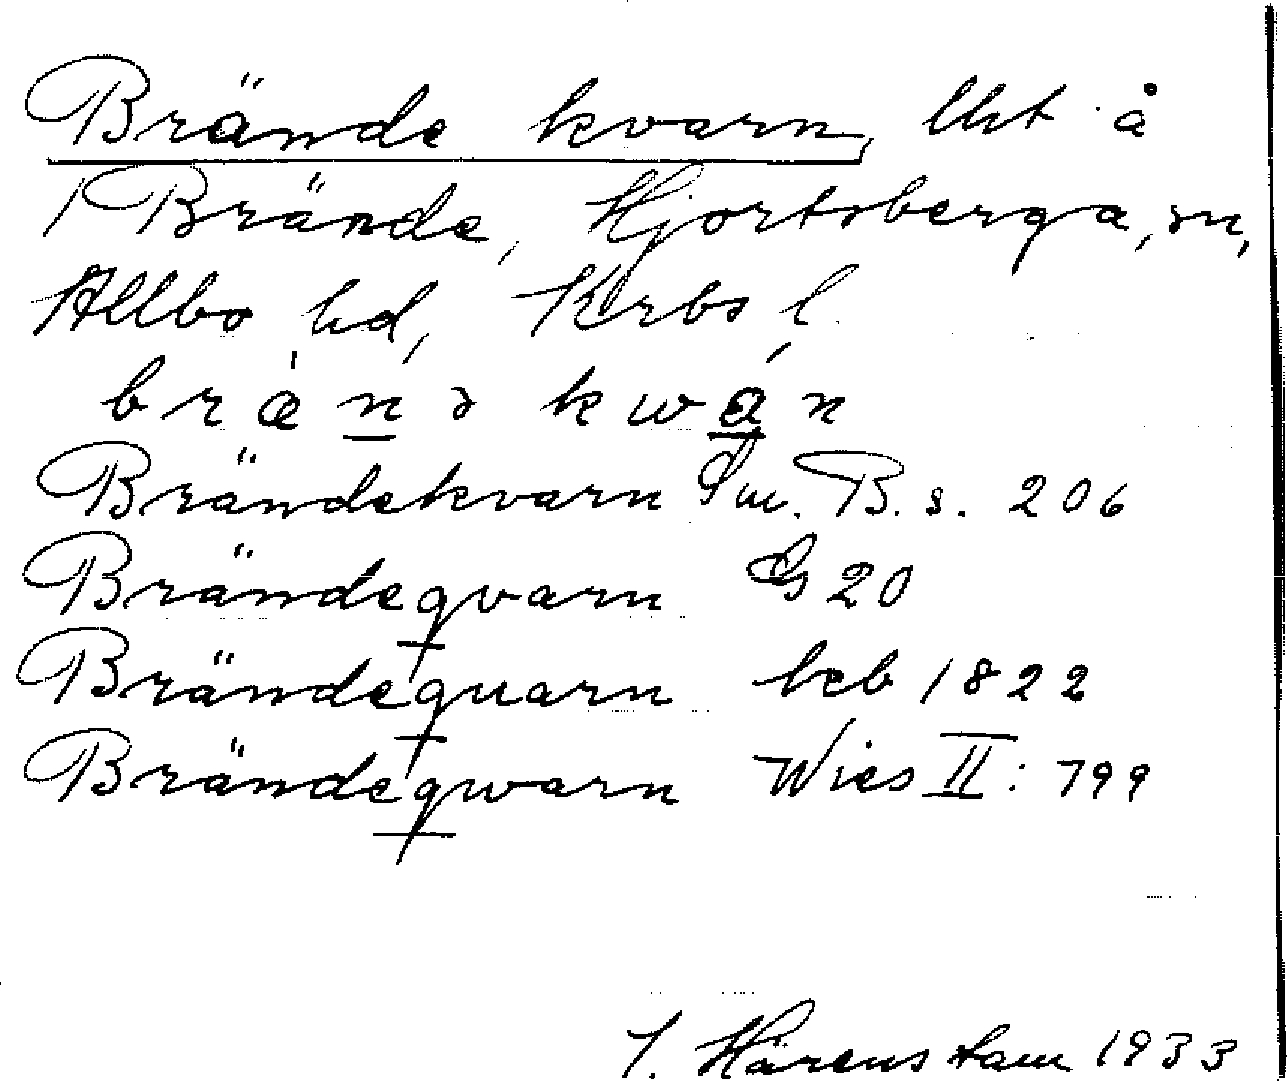 Brände kvarn, lht å
1 Brände, Hjortsberga, sn,
Allbo hd, Krbs l
bränə kwán
Brändekvarn Sm. B. s. 206
Brändeqvarn G 20
Brändequarn heb 1822
Brändeqwarn Wies II: 799
J. Härenstam 1933